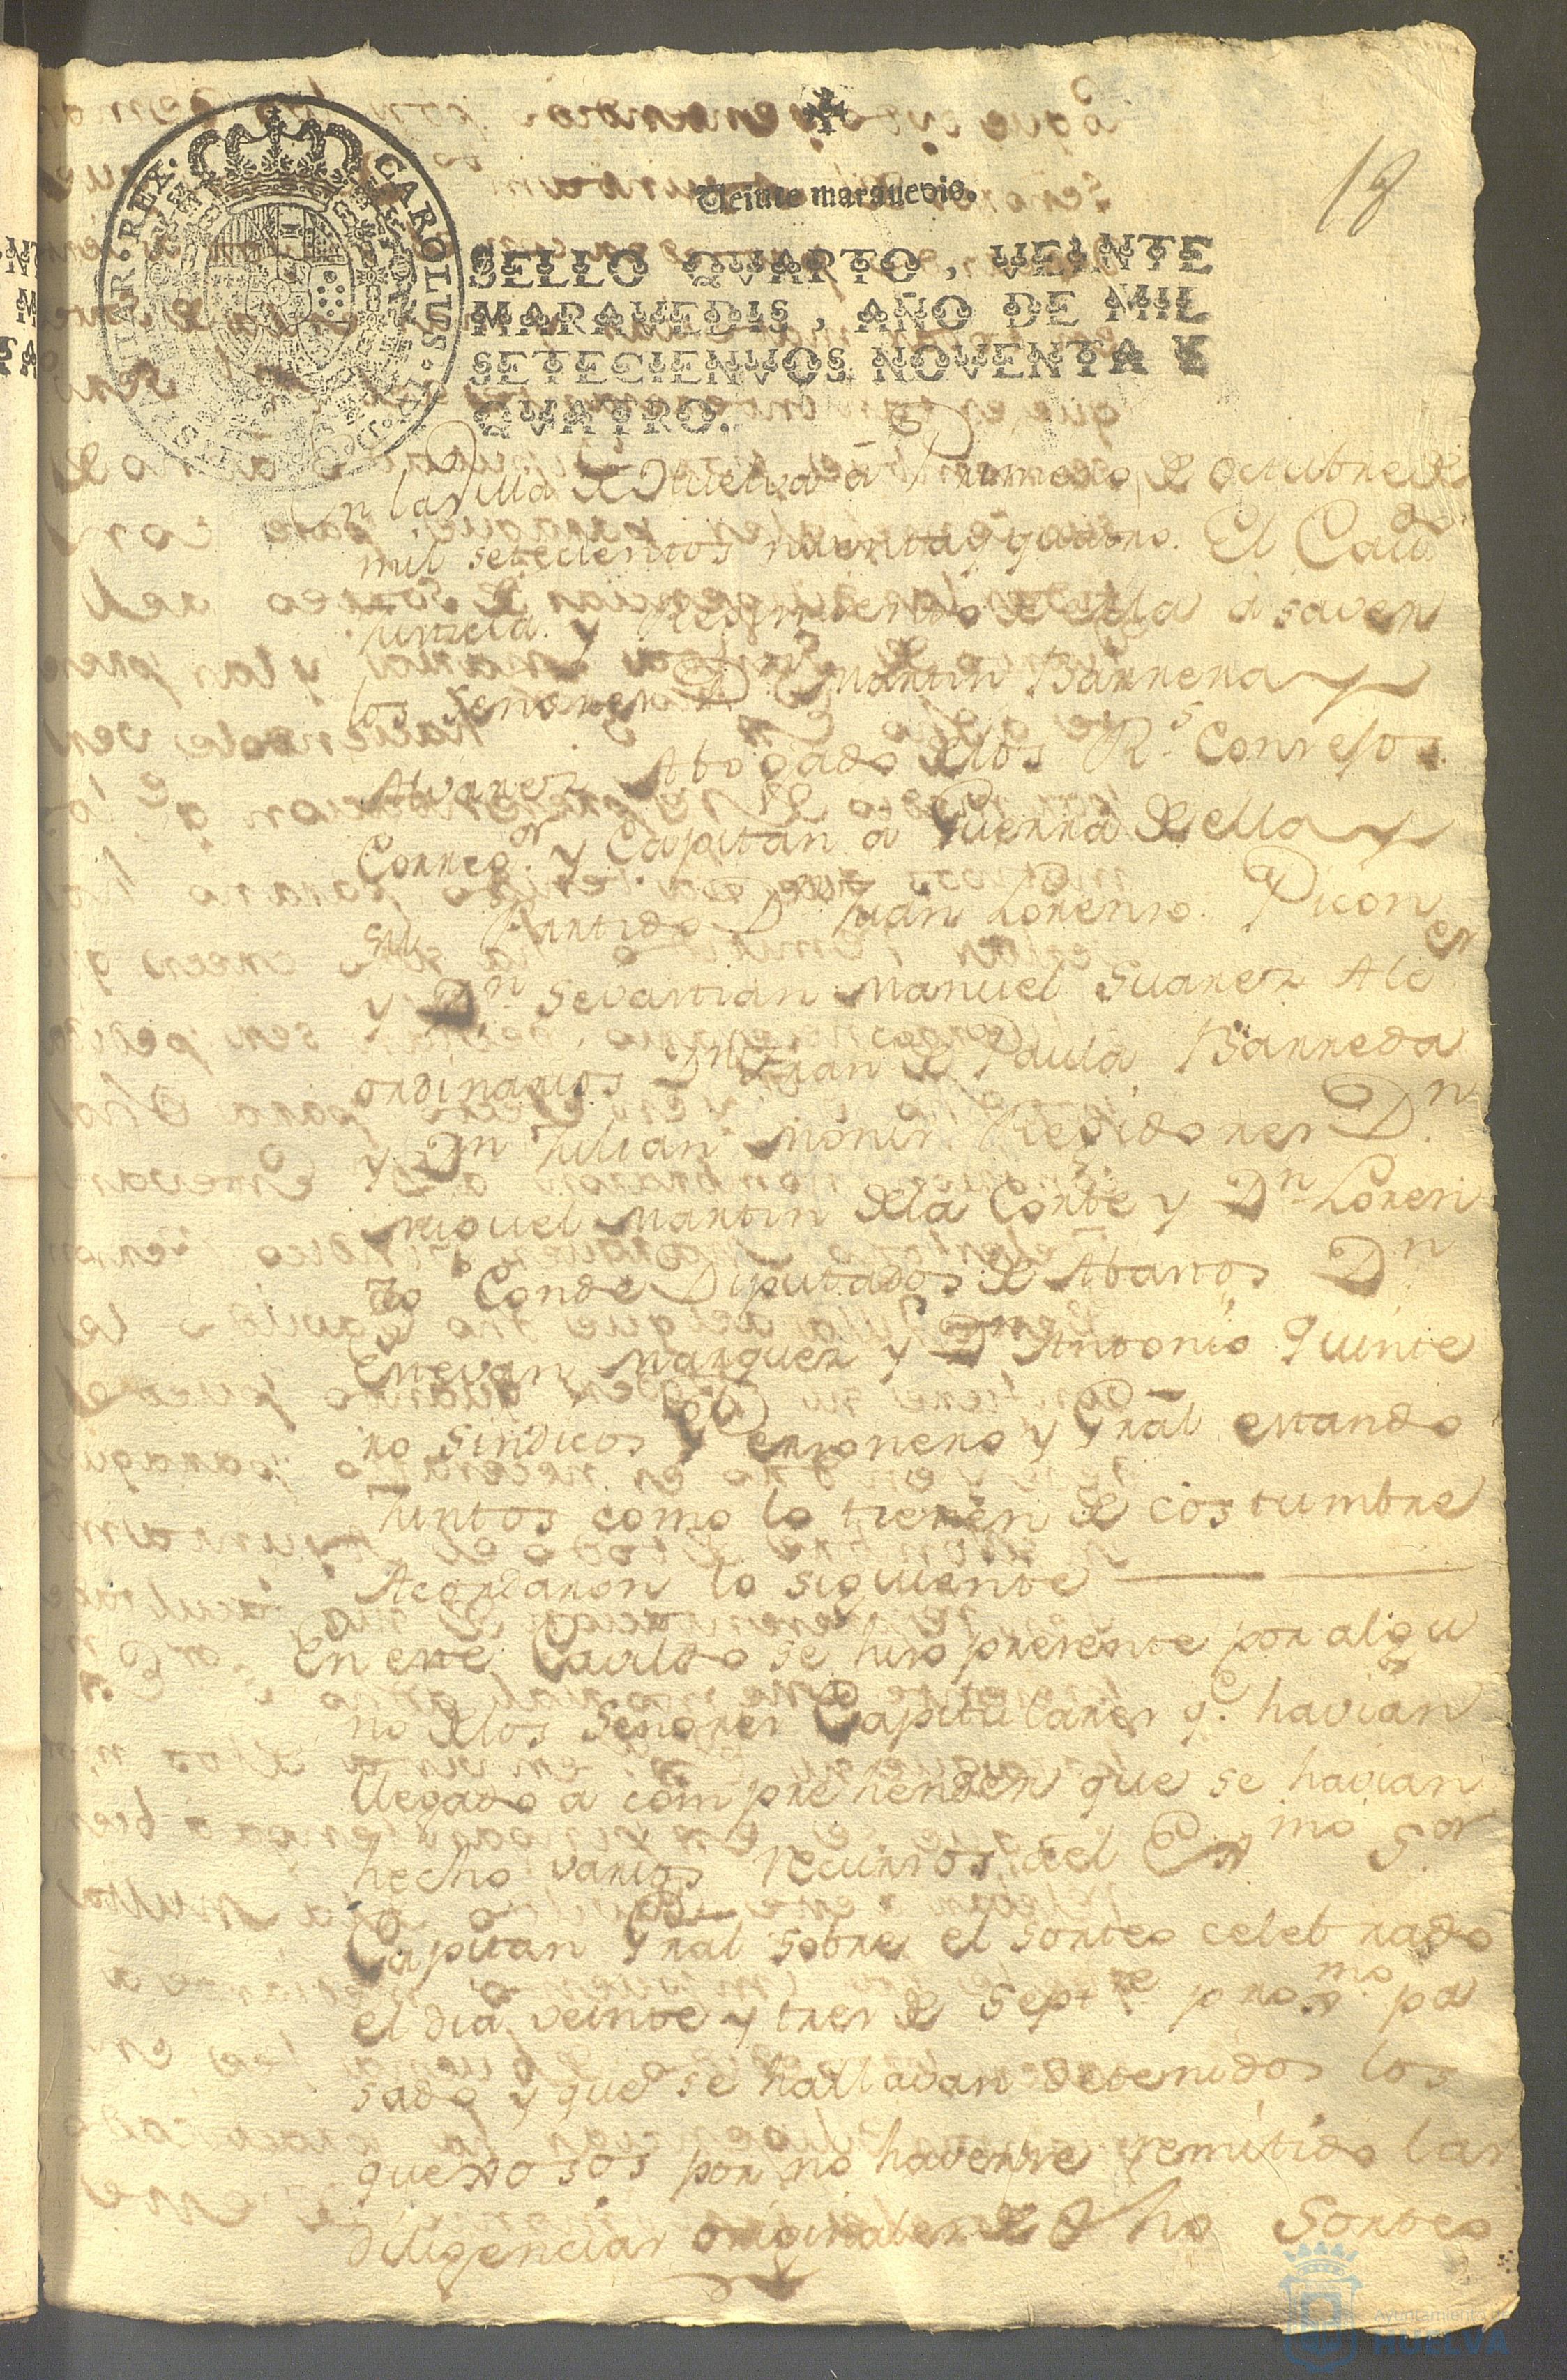 18
Veinte maravedis.
SELLO QVARTO, VEINTE
MARAVEDIS, AÑO DE MIL
SETECIENVOS NOVENTA Y
QVATRO.
CAROLUS. HISPANIAR. REX.
En la villa de Huelva á Primero de octubre de
mil setecientos nobenta y quatro. El Cavdo
justicia y Regimiento de ella á saver
los señores Dn Martin Barrera y
Alvarez Abogado de los Rs. Consejos
Corregor. y Capitan á Guerra de ella y
su Partido Dn Juan Lorenso Picon
y Dn Sevastian Manuel Suarez Alces
ordinarios Dn Fran de Paula Barreda
y Dn Julian Monis Regidores Dn
Miguel Martin de la Corte y Dn Loren
zo Conde Diputados de Abastos Dn
Estevan Marquez y Dn Antonio Quinte
ro Sindicos Personero y Gral estando
Juntos como lo tienen de costumbre
Acordaron lo siguiente
En este Cavildo se hiso presente por algu
no de los Señores Capitulares qe. havian
llegado a comprehender que se havian
hecho varios recursos del Exmo Sor
Capitan Gral sobre el sorteo celebrado
el dia veinte y tres de Septre proxmo. pa
sado y que se hallavan detenidos los
quexosos por no haverse remitido las
diligencias originales de dho Sorteo
Ayuntamiento de
HUELVA